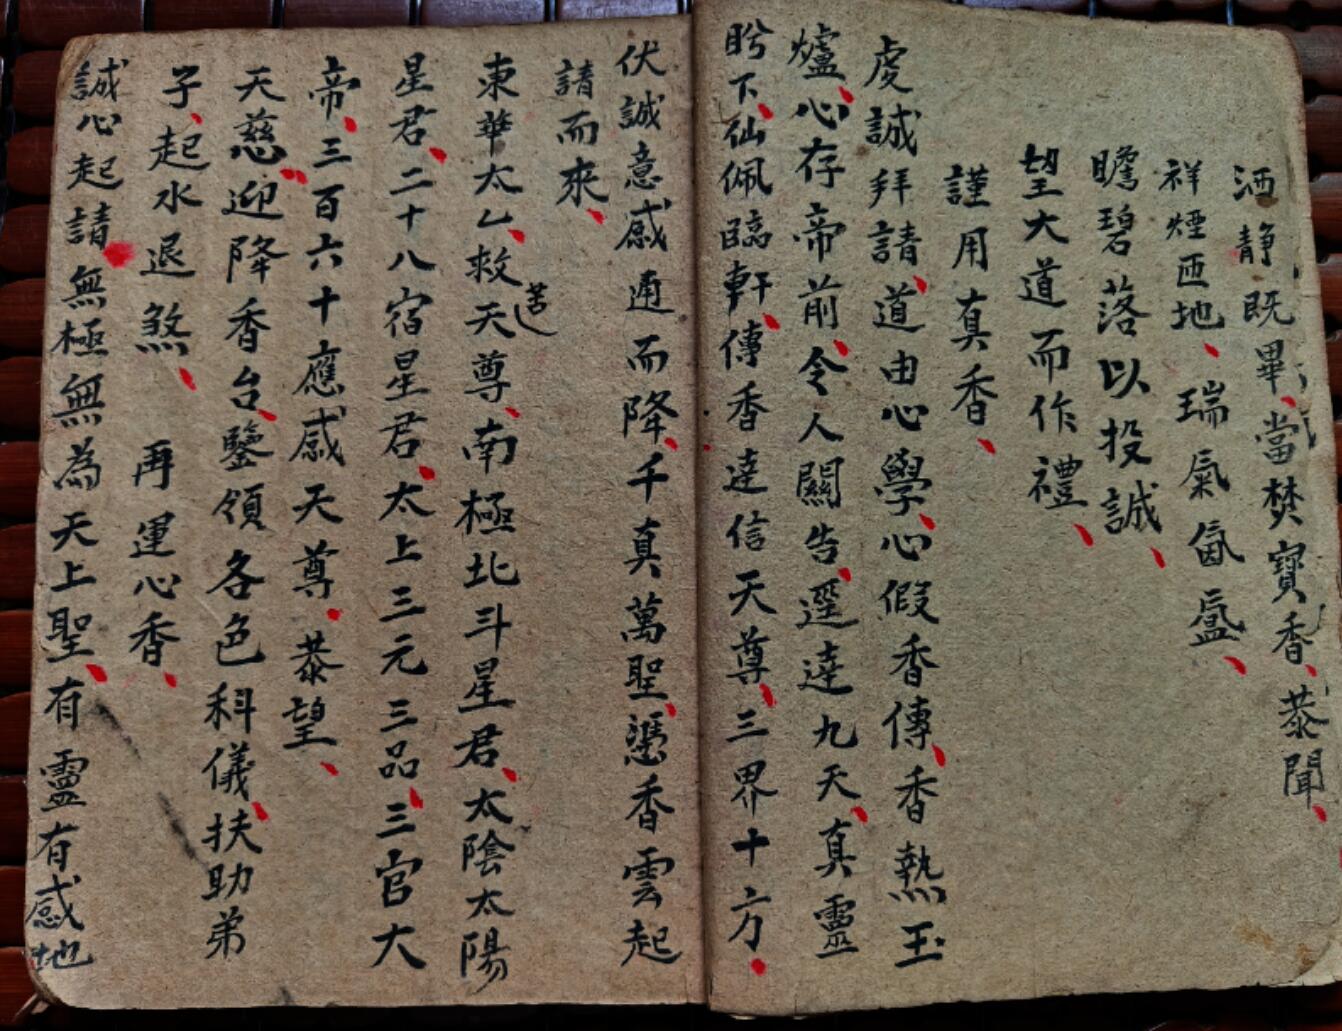 洒静既畢當焚寳香恭聞
祥煙匝地瑞氣氤氳
瞻碧落以投誠
望大道而作禮
謹用真香
虔誠拜請道由心學心假香傳香熱玉
爐心存帝前令人關告遥達九天真靈
盻下仙佩臨軒傳香達信天尊三界十方
伏誠意感通而降千真萬聖憑香雲起
請而來
東華太乙救苦天尊南極北斗星君太陰太陽
星君二十八宿星君太上三元三品三官大
帝三百六十應感天尊恭望
天慈迎降香台鑒領各色科儀扶助弟
子起水退煞再運心香
誠心起請無極無為天上聖有靈有感地